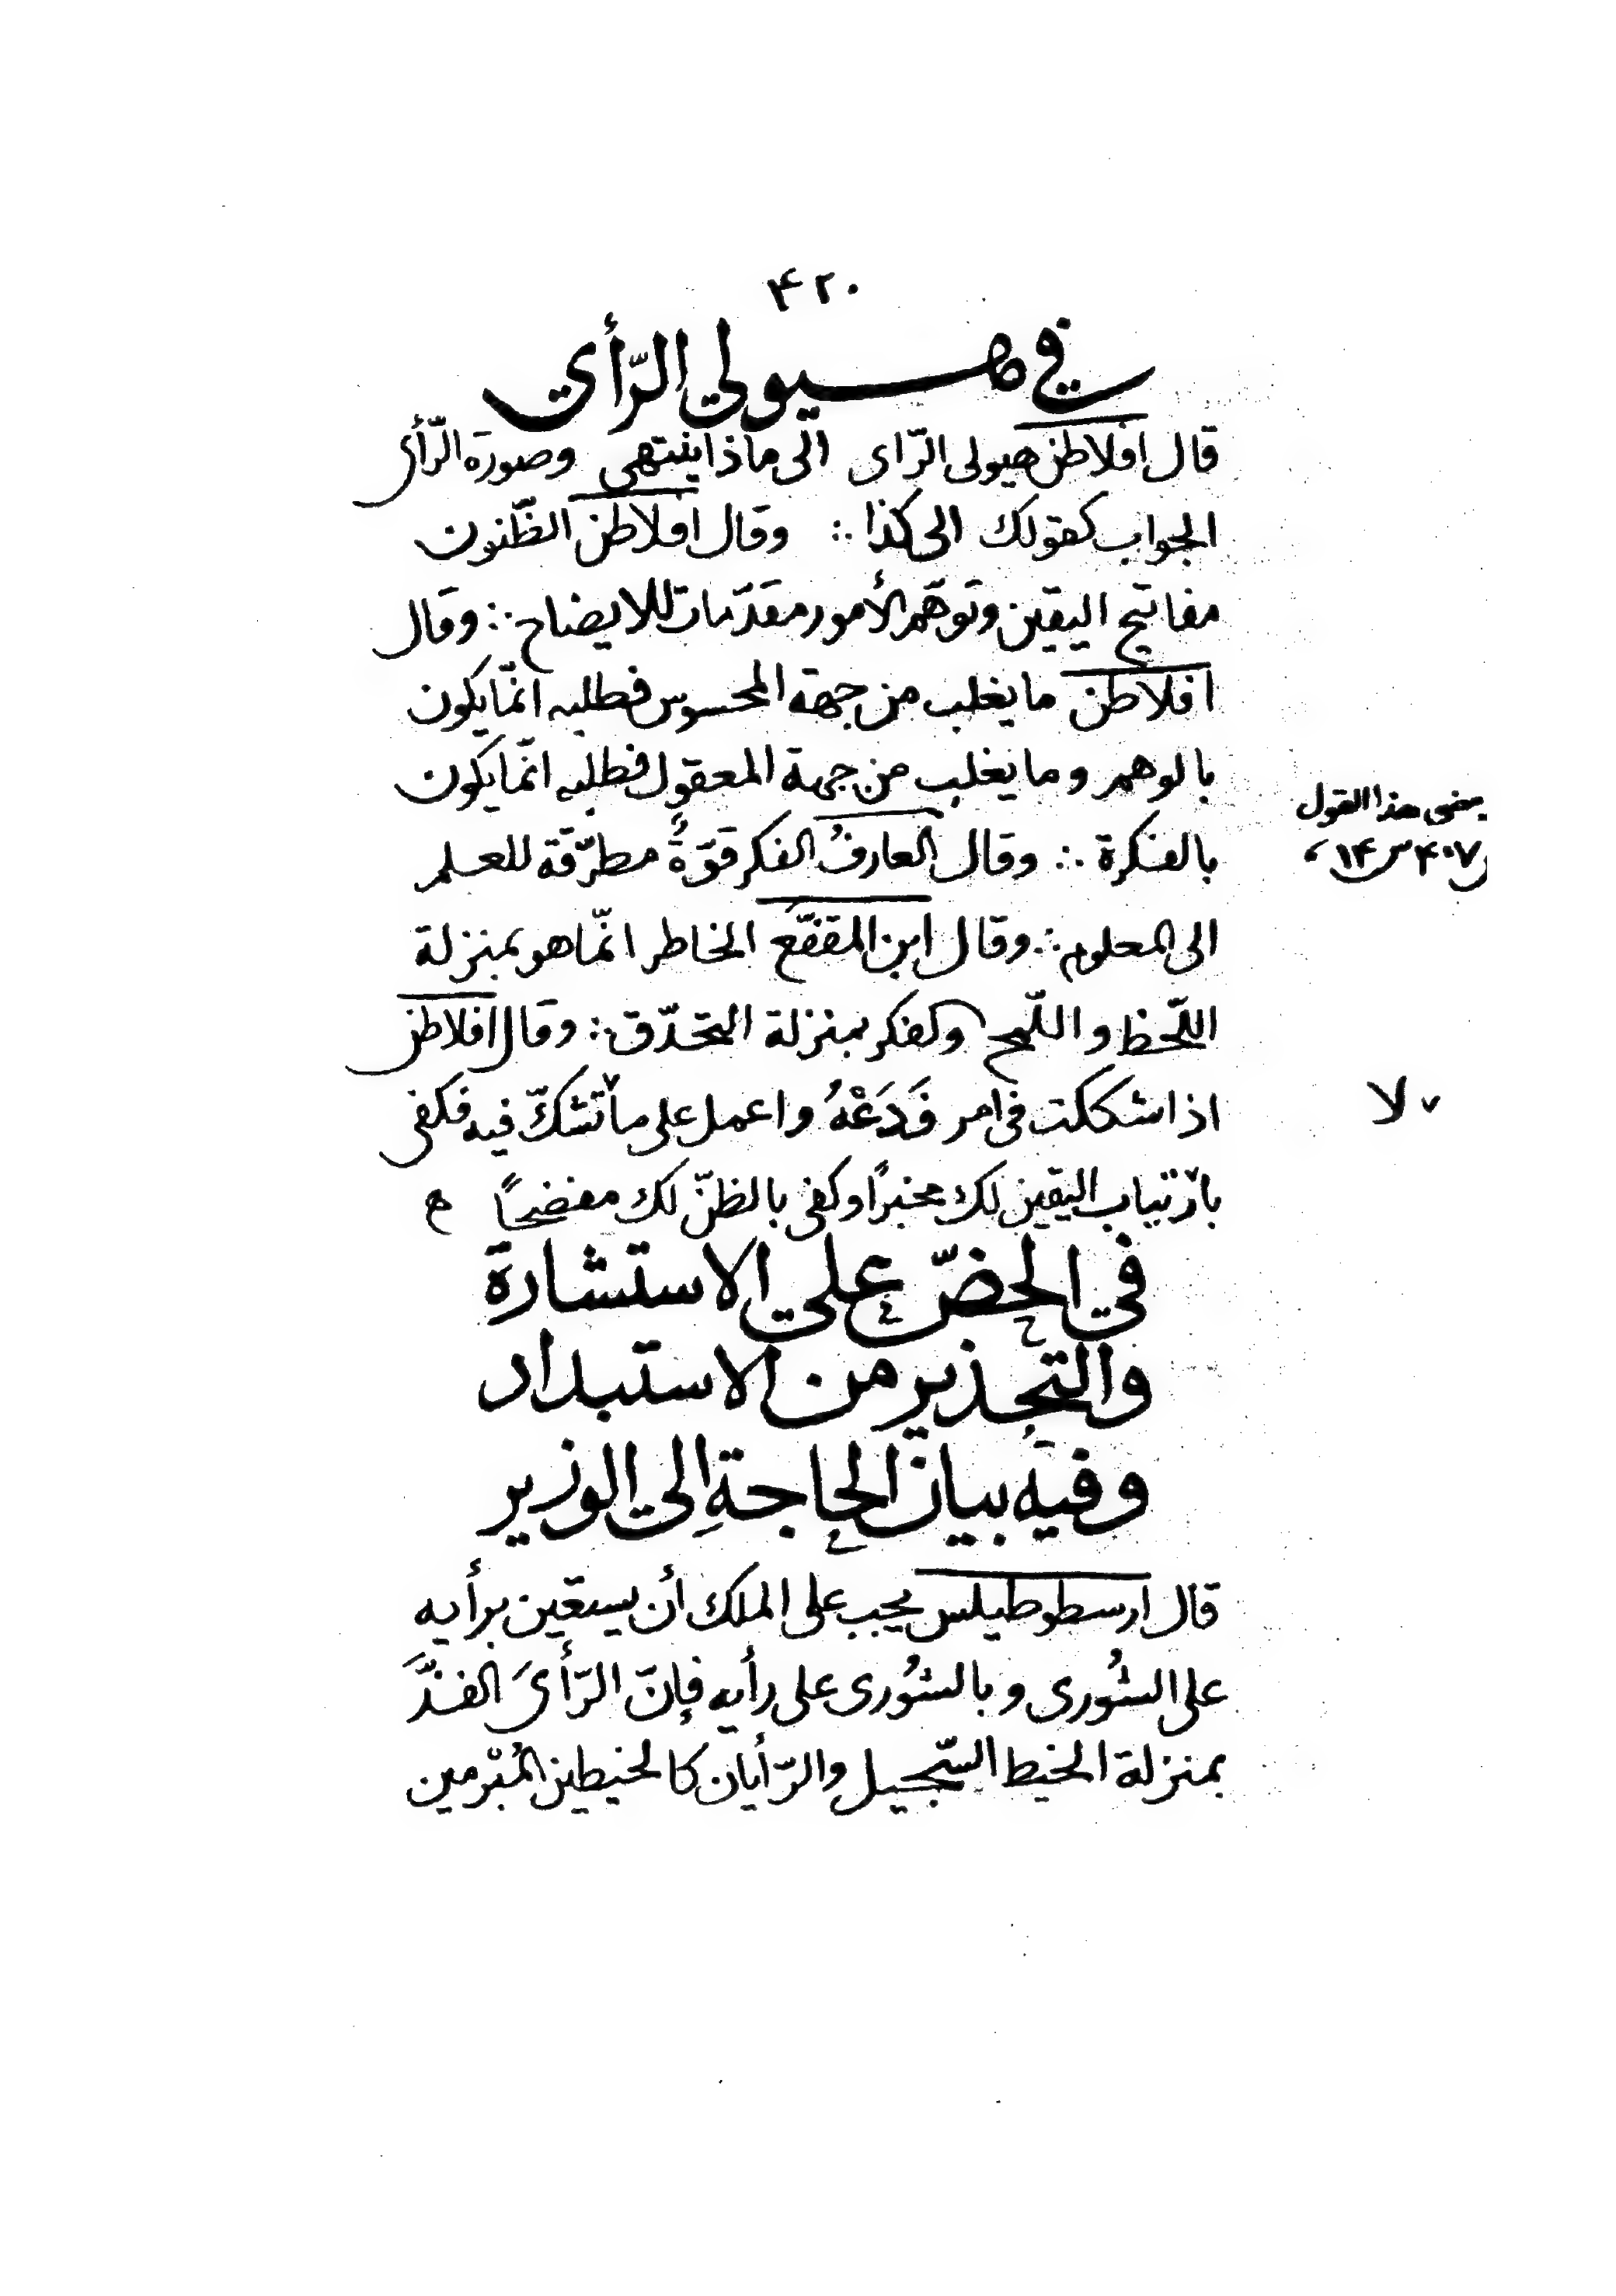 ۴۲۰
في هيولي الرّأي
قال افلاطن هيولى الرّاى الى ماذا ينتهى وصورة الرّأى
الجواب كقولك الى كذا ∴ وقال افلاطن الظّنون
مفاتيح اليقين وتوهّم الأمور مقدّمات للايضاح ∴ وقال
افلاطن ما يغلب من جهة المحسوس فطلبه انّما يكون
بالوهم وما يغلب من جهة المعقول فطلبه انّما يكون
بالفكرة ∴ وقال العارفُ الفكر قوّةٌ مطرّقة للعلم
الى المعلوم ∴ وقال ابن المقفّع الخاطر انّما هو بمنزلة
اللّحظ و اللّمح والفكر بمنزلة التحدّق ∴ وقال افلاطن
اذا شككت فى امر فَدَعْهُ واعمل على ما تشكّ فيه فكفى
بارتياب اليقين لك مخبرًا وكفى بالظنّ لك مفضحًا
في الحضّ علي الاستشارة
والتحذير من الاستبداد
وفيه بيان الحاجةِ الى الوزير
قال ارسطوطيلس يجب على الملك أن يستعين برأيه
على الشُورى و بالشُورى على رأيه فإنّ الرّأىَ الفذَّ
بمنزلة الخيط السّحيل والرّأيان كالخيطين المُبْرمين
هذا القول
۴۰۷ س ۱۴
لا